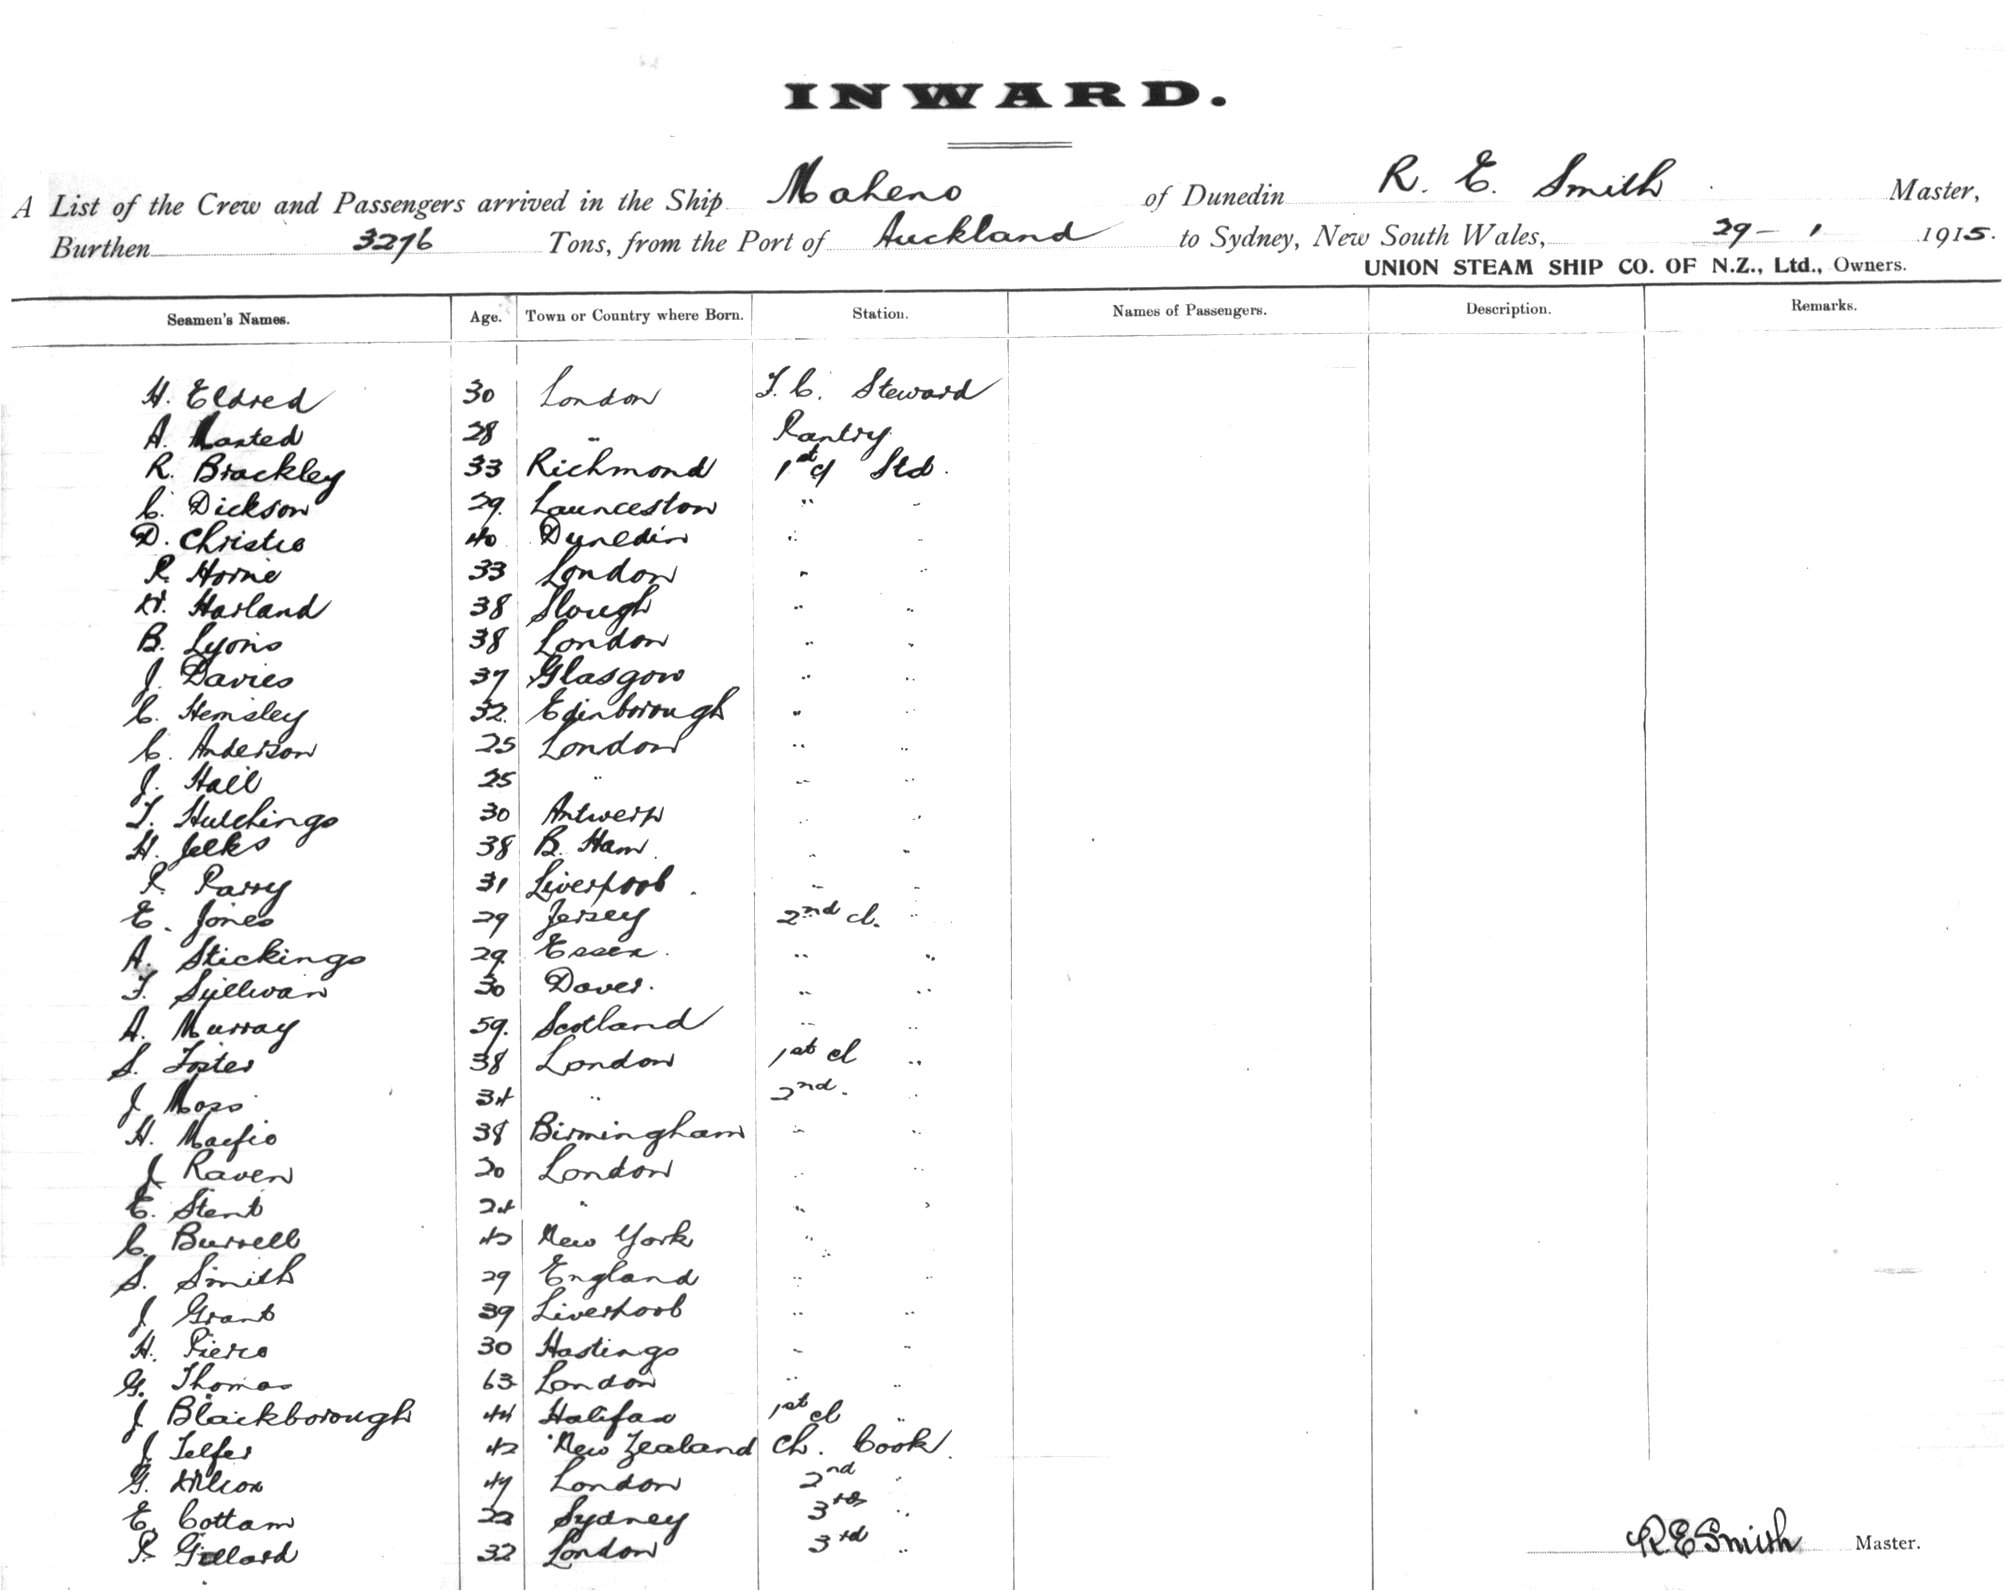 INWARD.
A List of the Crew and Passengers arrived in the Ship Maheno of Dunedin R. E. Smith Master,
Burthen 3276 Tons, from the Port of Auckland to Sydney, New South Wales, 29 - 1 1915.
UNION STEAM SHIP CO. OF N.Z., Ltd., Owners.
Seamen's Names. Age. Town or Country where Born. Station. Names of Passengers. Description. Remarks.
H. Eldred 30 London F. C. Steward
A. 28 " Pantry
R. Brackley 33 Richmond 1st cl Std.
C. Dickson 29. Launceston " "
D. Christie 40 Dunedin " "
R. Horne 33 London " "
H. Harland 38 Slough " "
B. Lyons 38 London " "
J. Davies 37 Glasgow " "
C. Hemsley 32. Edinborough " "
C. Anderson 25 London " "
J. Hall 25 " " "
T. Hutchings 30 Antwerp " "
H. Jelks 38 B. Ham " "
R. Parry 31 Liverpool. " "
E. Jones 29 Jersey 2nd cl. "
A. Stickings 29. Essex. " "
T. Sullivan 30 Dover. " "
A. Murray 59. Scotland " "
S. Foster 38 London 1st cl "
J. Moss 34 " 2nd. "
H. 38 Birmingham " "
J. Raven 20 London " "
E. Stent 24 " " "
C. Burrell 42 New York " "
S. Smith 29 England " "
J. Grant 39 Liverpool " "
H. Pierce 30 Hastings " "
G. Thomas 63 London " "
J. Blackborough 44 Halifax 1st cl "
J. Telfer 42 New Zealand Ch. Cook.
G. Wilson 47 London 2nd "
E. Cottam 22 Sydney 3rd "
P. Gillard 32 London 3rd "
R E Smith Master.